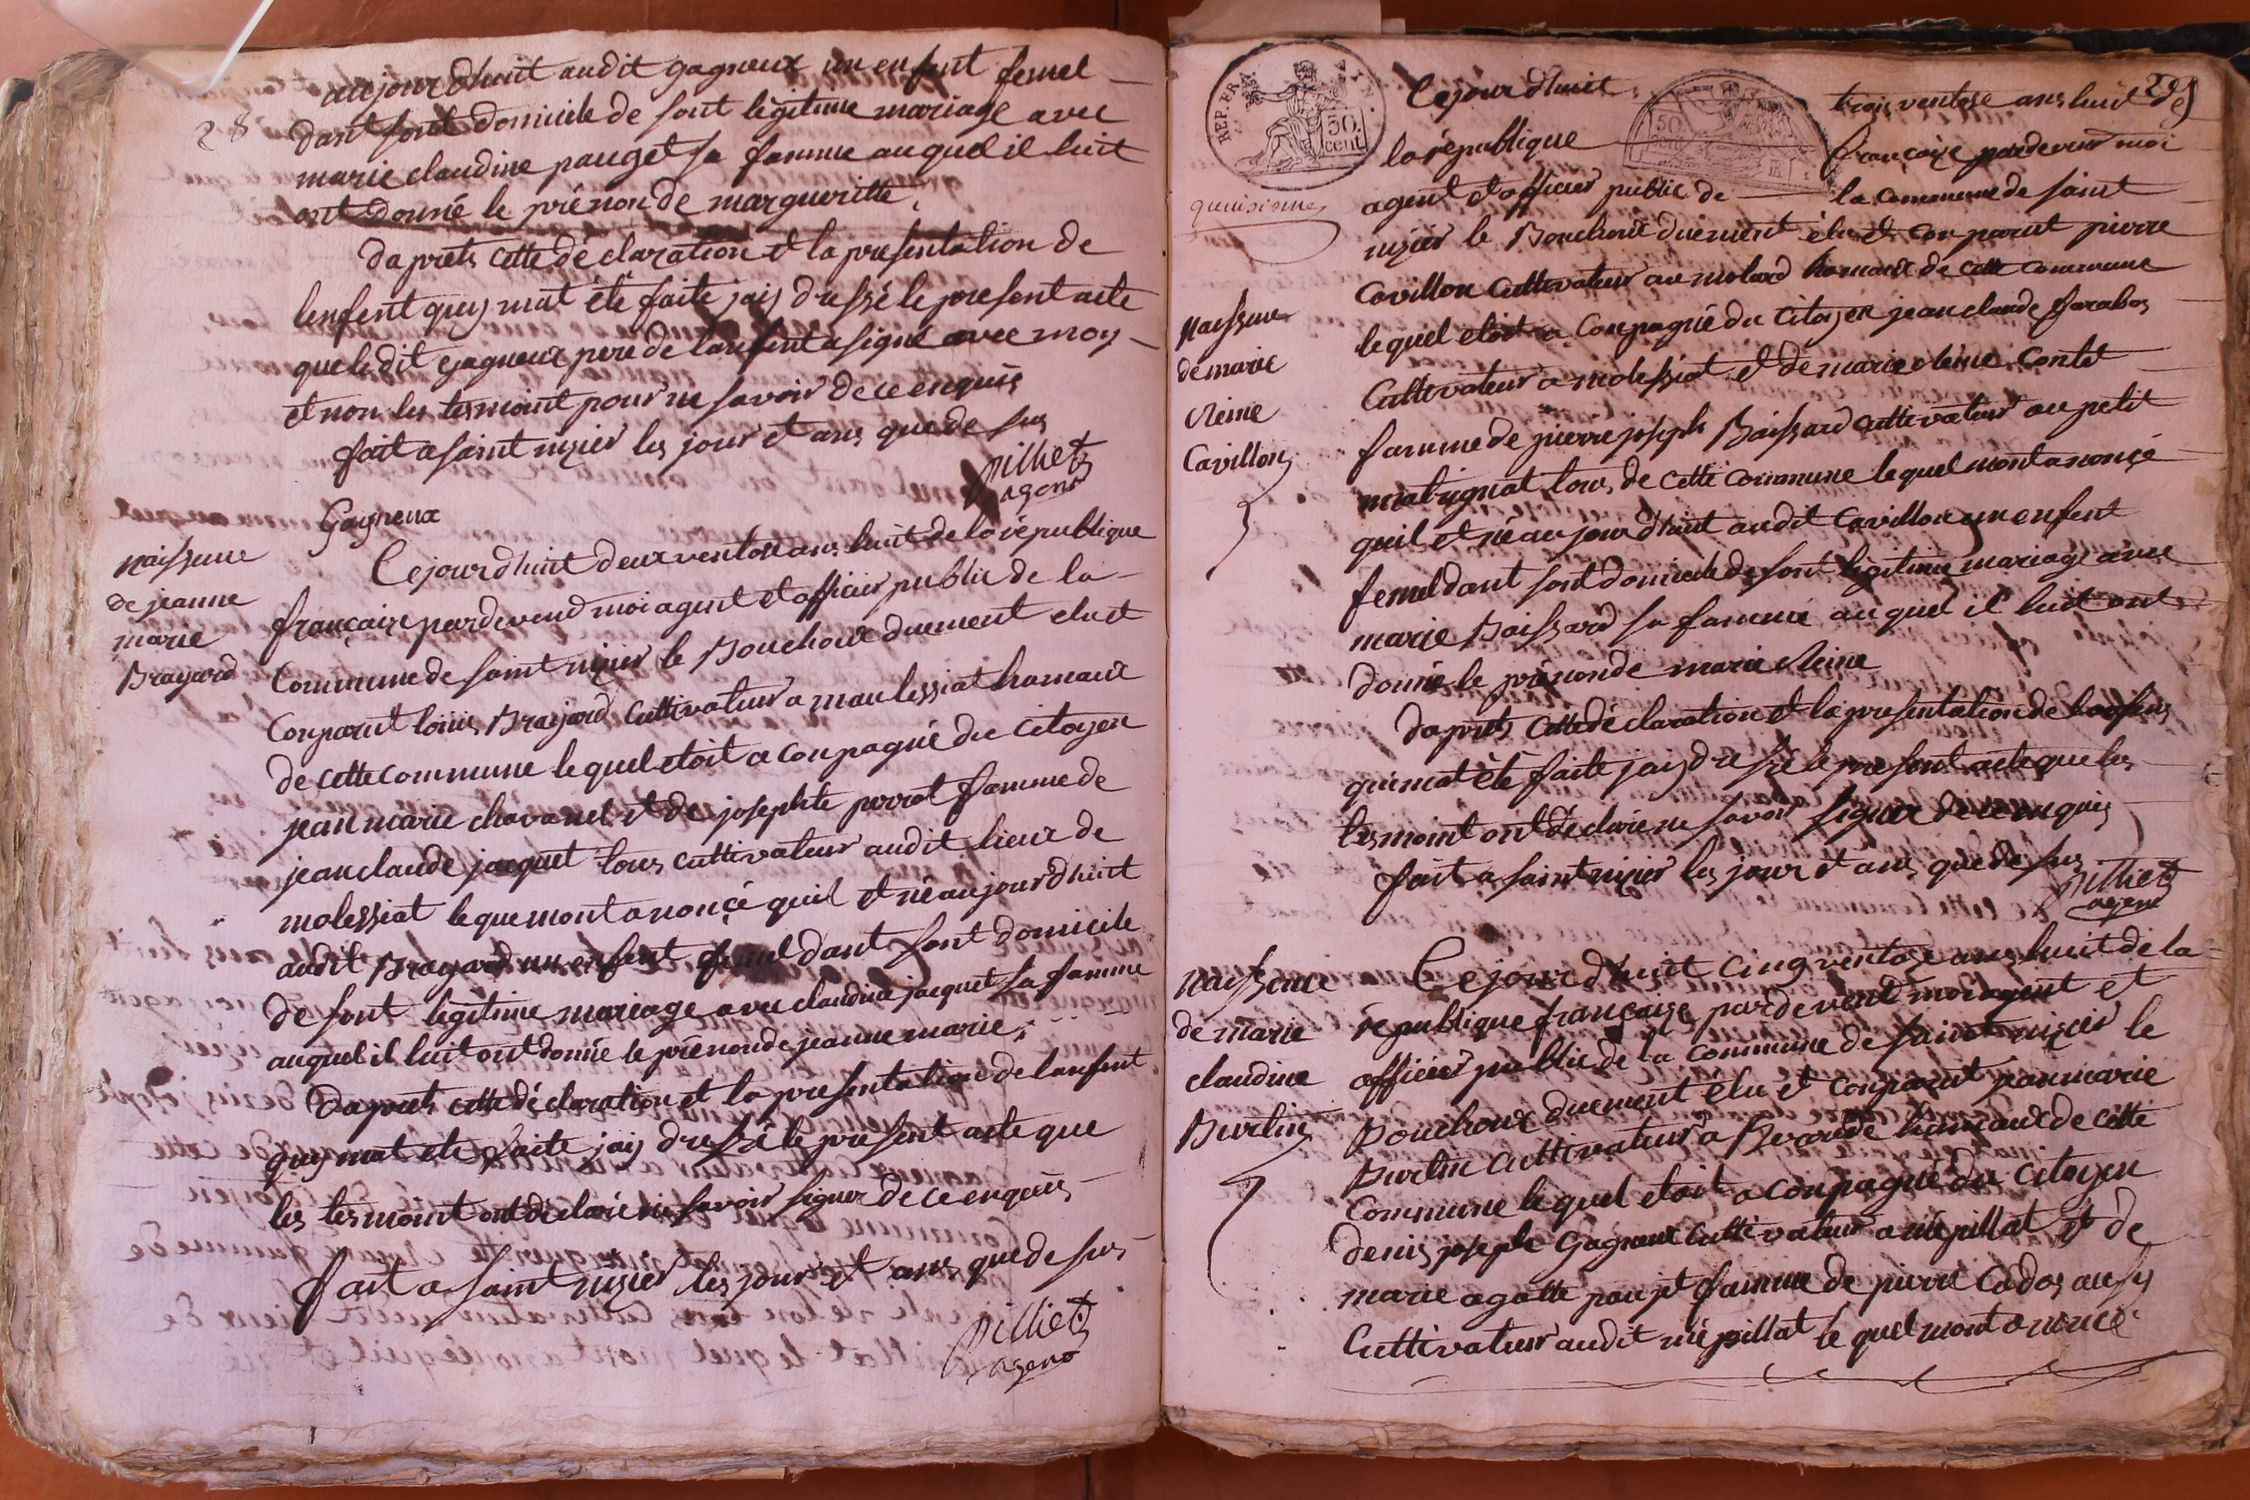 28
aujourdhuit audit gagneux un enfent femel
dant sont domicile de sont legitime mariage avec
marie claudine pauget sa famme auquel il luit
ont donné le prénon de margueritte,
daprets cette déclaration et la presentation de
lenfent quy mat été faite jaij dressé le present acte
que ledit gagneux pere de lanfent a signé avec moy
et non les tesmoint pour ne savoir de ce enquis
fait a saint nizier les jour et ans que de sus
pilliet
agent
Gagneux
naissance
de jeanne
marie
Brayard
Cejourdhuit deux ventose ans huit de la république
française pardevend moi agent et officier public de la
commune de saint nizier le Bouchoux duement elu et
conparut louis Brayard cultivateur a maulessiat hamaux
de cette commune lequel etoit aconpagné du citoyen
jean marie chavanel et de josephte perrat famme de
jean claude jacquet tous cultivateur audit lieux de
molessiat leque mont anoncé quil et né aujourdhuit
audit Brayard un enfent femel dant sont domicile
de sont legitime mariage avec claudine jacquet sa famme
auquel il luit ont donné le prénon de jeanne marie,
Daprets cette déclaration et la presentation de lanfent
quy mat eté faite jaij dressé le present acte que
les tesmoint ont déclaré ne savoir signer de ce enquis
fait a saint nizier les jour et ans que de sus
pilliet
agent
REP. FRA.
50.
cent.
29
Cejourdhuit trois ventose ans huit de
la république française pardevend moi
agent et officier public de la commune de saint
nizier le Bouchoux duement élu et conparut pierre
Cavillon cultivateur au molard hamaux de cette commune
lequel etoit a conpagné du citoyen jean claude farabos
cultivateur a molessiat et de marie reine contet
famme de pierre joseph Baissard cultivateur au petit
matignat tous de cette commune lequel mont anoncé
quil et né aujourdhuit audit Cavillon un enfent
femel dant sont domicile de sont legitime mariage avec
marie Baissard sa famme auquel il luit ont
donné le prénon de marie Reine
daprets cette déclaration et la presentation de lanfent
qui mat été faite jaij dressé le present acte que les
tesmoint ont déclaré ne savoir signer de ce enquis
fait a saint nizier les jour et ans que de sus
pilliet
agent
naissance
de marie
Reine
Cavillon
naissence
de marie
claudine
Burtin
Cejourdhuit cinq ventose ans huit de la
république française pardevend moi agent et
officier public de la commune de saint nizier le
Bouchoux duement élu et conparut jean marie
Burtin cultivateur a hamaux de cette
commune lequel etoit a conpagné du citoyen
denis joseph Gagneux cultivateur a népillat et de
marie agatte paujet famme de pierre cadoz ausy
cultivateur audit népillat lequel mont anoncé